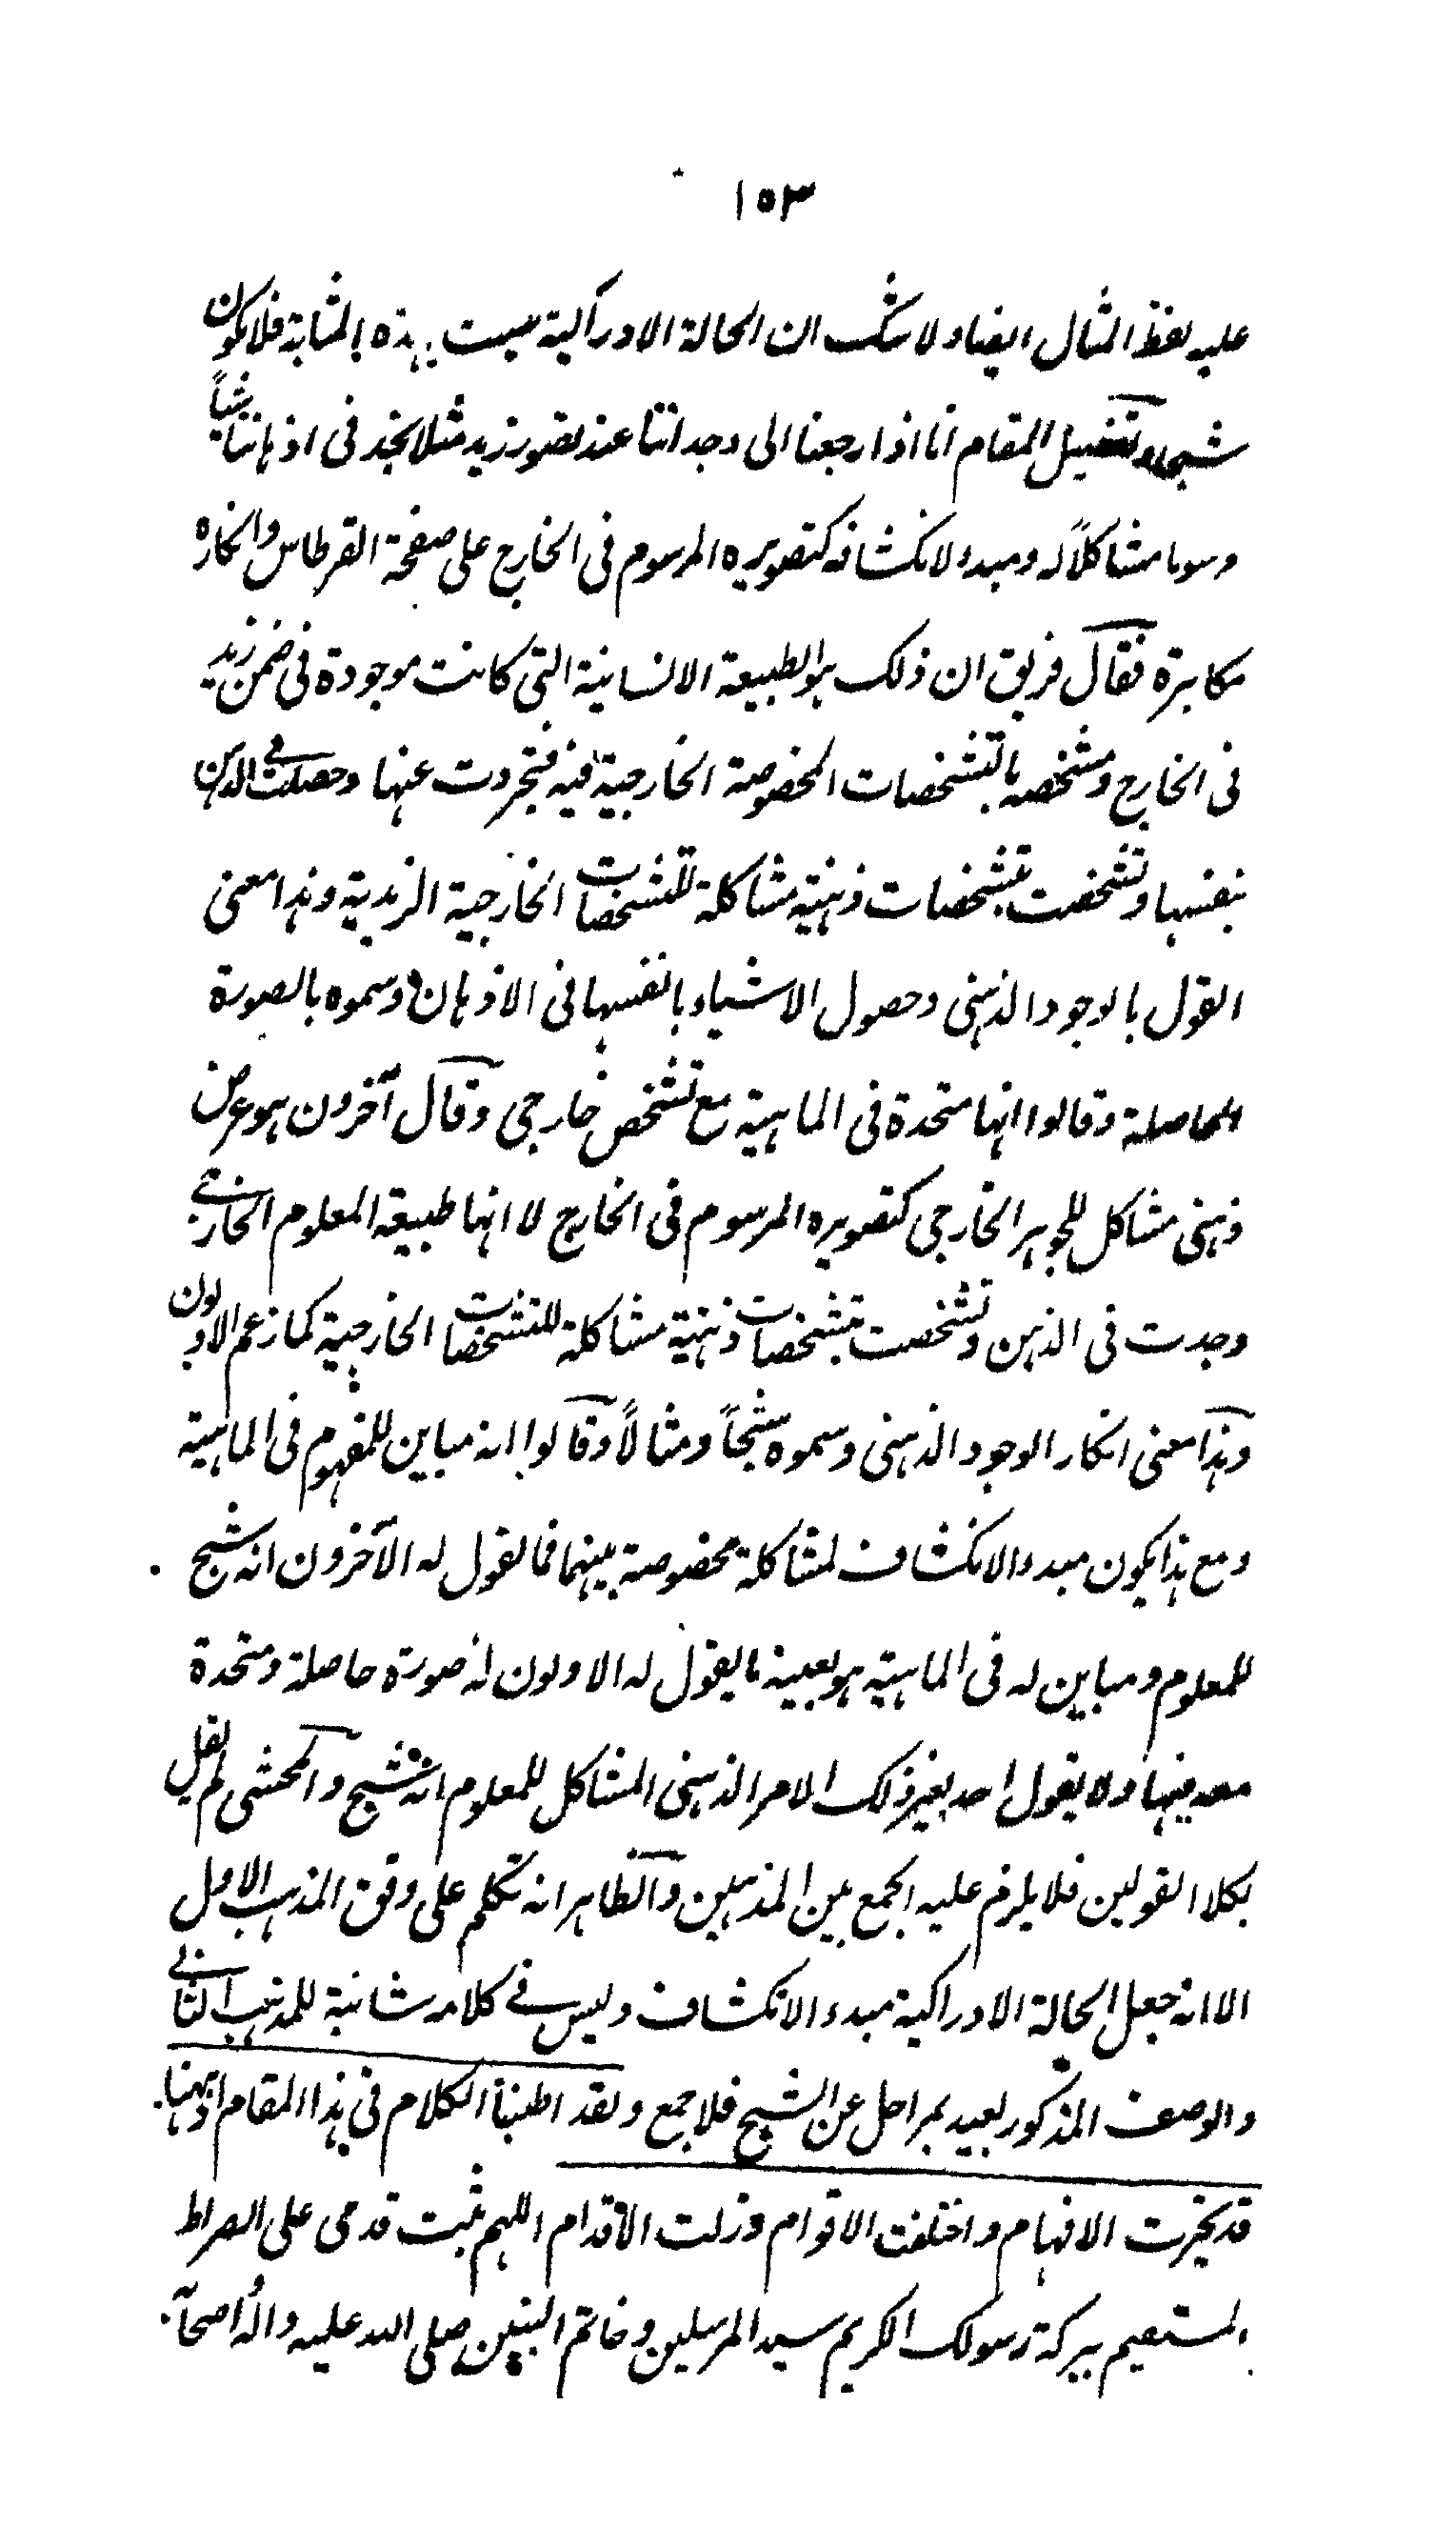 ١٥٣
عليه لفظ المثال ايضا ولا شك ان الحالة الادراكية ليست بهذه المثابة فلا يكون
شبحا وتفصيل المقام انا اذا رجعنا الى وجداننا عند تصور زيد مثلا نجد فى اذهاننا شيأ
مرسوما مشاكلاً له ومبدء لانكشافه كتصويره المرسوم فى الخارج على صفحة القرطاس وانكاره
مكابرة فقال فريق ان ذلك هو الطبيعة الانسانية التى كانت موجودة فى ضمن زيد
فى الخارج ومشخصه بالتشخصات المخصوصة الخارجية فيه فتجردت عنها وحصلت فى الذهن
بنفسها وتشخصت بتشخصات ذهنية مشاكلة للتشخصات الخارجية الزيدية وهذا معنى
القول بالوجود الذهنى وحصول الاشياء بانفسها فى الاذهان وسموه بالصورة
الحاصلة وقالوا انها متحدة فى الماهية مع تشخص خارجى وقال آخرون هو عرض
ذهنى مشاكل للجوهر الخارجى كتصويره المرسوم فى الخارج لا انها طبيعة المعلوم الخارجى
وجدت فى الذهن وتشخصت بتشخصات ذهنية مشاكلة للتشخصات الخارجية كما زعم الاولون
وهذا معنى انكار الوجود الذهنى وسموه شبحاً ومثالاً وقالوا انه مباين للمفهوم فى الماهية
ومع هذا يكون مبدء الانكشاف لمشاكلة مخصوصة بينهما فما يقول له الآخرون انه شبح
للمعلوم ومباين له فى الماهية هو بعينه ما يقول له الاولون انه صورة حاصلة ومتحدة
معه فيها ولا يقول احد بغير ذلك الامر الذهنى المشاكل للمعلوم انه شبح والمحشى لم يقل
بكلا القولين فلا يلزم عليه الجمع بين المذهبين والظاهر انه تكلم على وفق المذهب الاول
الا انه جعل الحالة الادراكية مبدء الانكشاف وليس فى كلامه شائبة للمذهب الثانى
والوصف المذكور بعيد بمراحل عن الشبح فلا جمع ولقد اطنبنا الكلام فى هذا المقام اذ ههنا
قد تحيرت الافهام واختلفت الاقوام وزلت الاقدام اللهم ثبت قدمى على الصراط
المستقيم ببركة رسولك الكريم سيد المرسلين وخاتم النبيين صلى الله عليه واله اصحابه